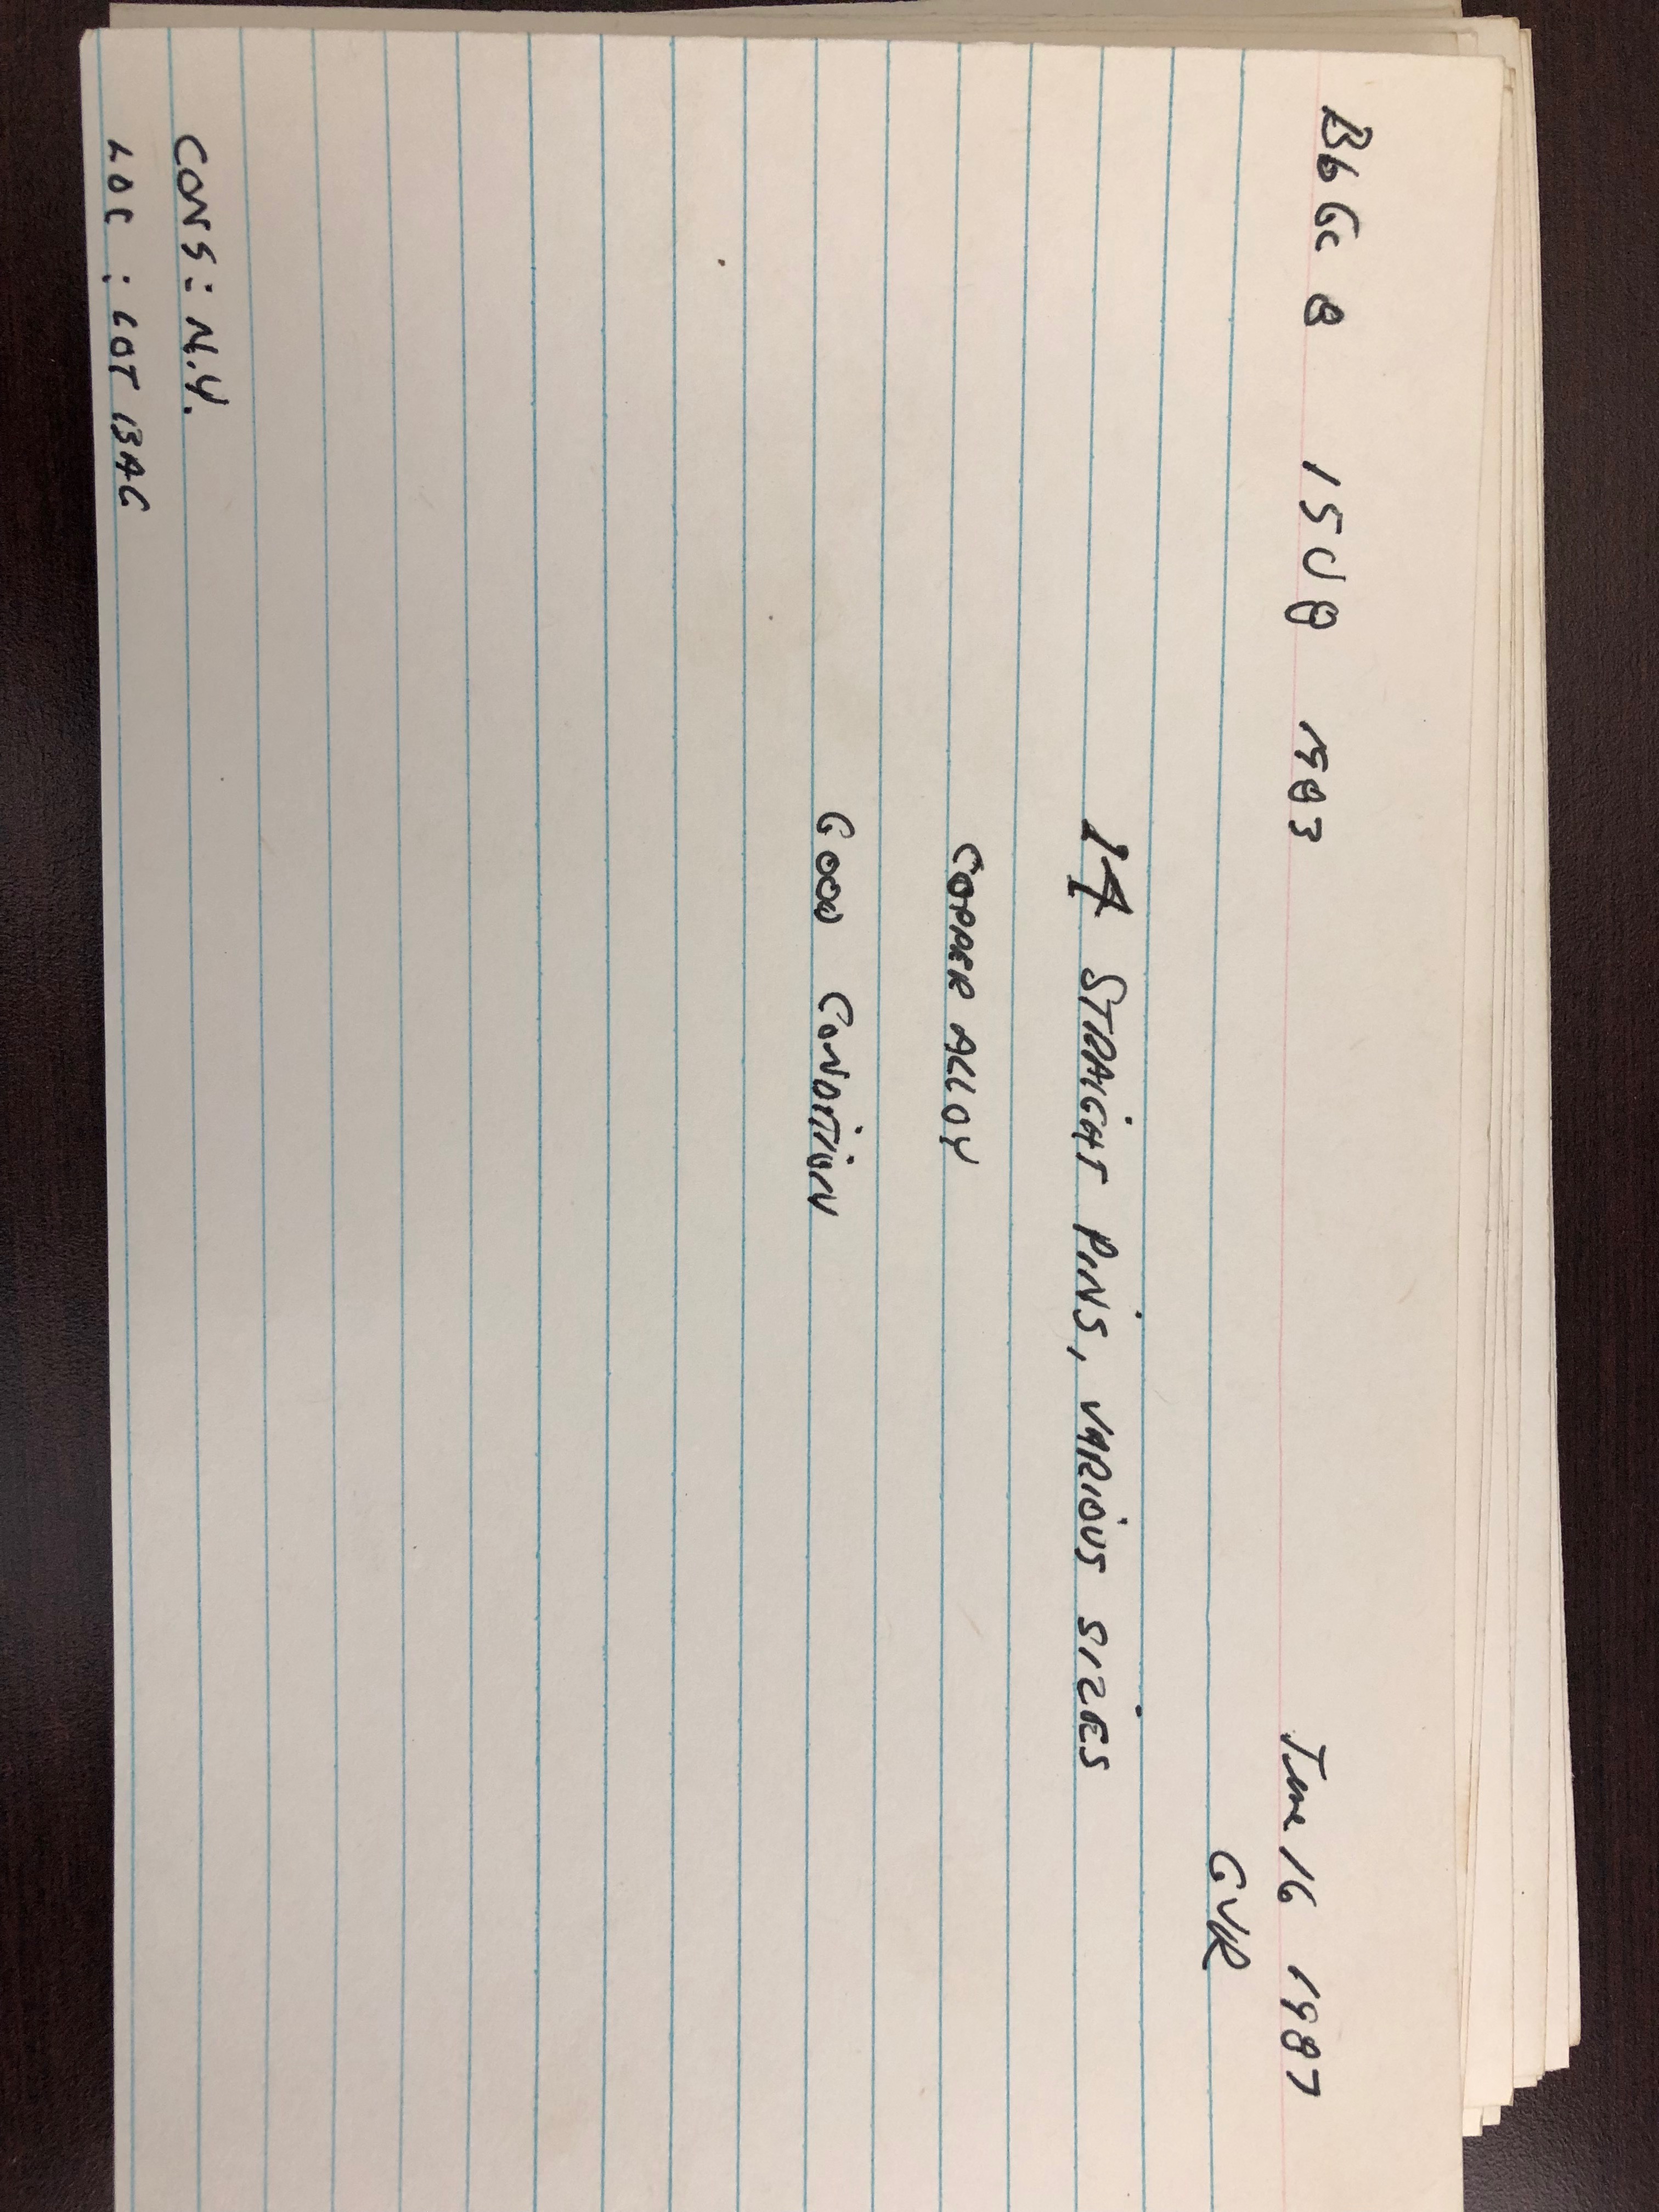 B6Gc 8 15U8 1983 June 16 1987
GVR
14 STRAIGHT PINS, VARIOUS SIZES
COPPER ALLOY
GOOD CONDITION
CONS: N.Y.
LOC : LOT BAG